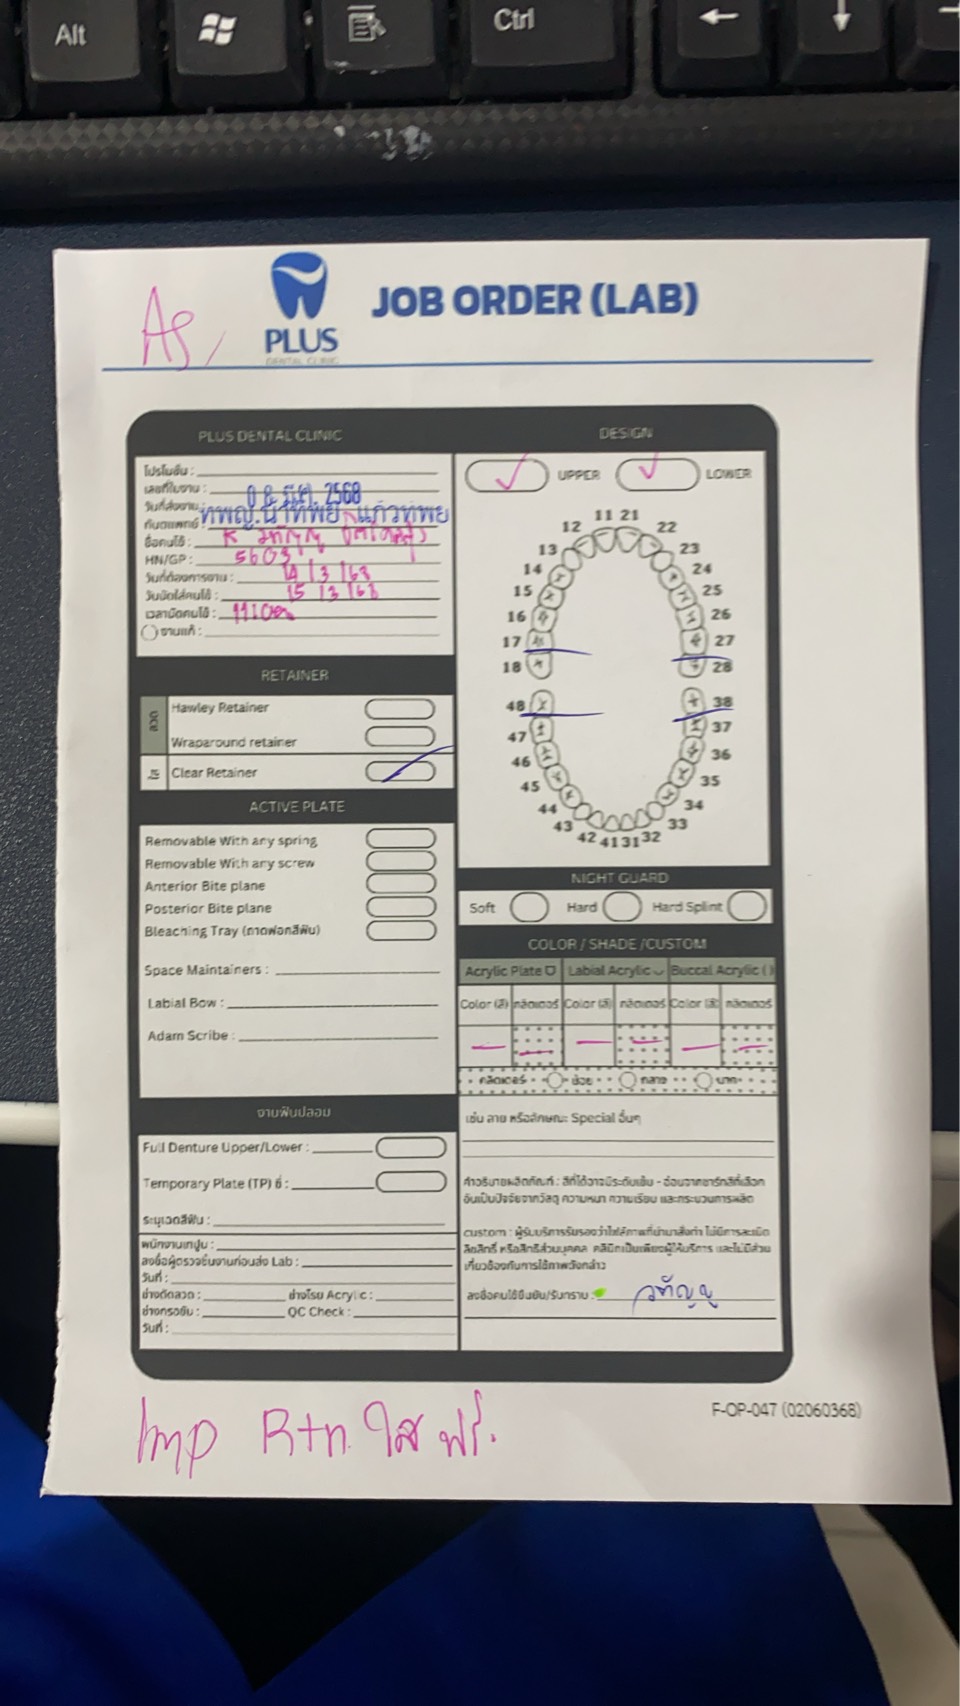 Alt
Ctrl
As,
PLUS
DENTAL CLINIC
JOB ORDER (LAB)
PLUS DENTAL CLINIC
โปรโมชั่น :
เลขที่ใบงาน :
วันที่ส่งงาน : 0 8 มี.ค. 2568
ทันตแพทย์ : ทพญ.น้ำทิพย์ แก้วทิพย์
ชื่อคนไข้ : K
HN/GP : 5603
วันที่ต้องการงาน : 14 / 3 / 68
วันนัดใส่คนไข้ : 15 / 3 / 68
เวลานัดคนไข้ : 11.00
งานแก้ :
RETAINER
Hawley Retainer
Wraparound retainer
ใส
Clear Retainer
ACTIVE PLATE
Removable With any spring
Removable With any screw
Anterior Bite plane
Posterior Bite plane
Bleaching Tray (ถาดฟอกสีฟัน)
Space Maintainers :
Labial Bow :
Adam Scribe :
งานฟันปลอม
Full Denture Upper/Lower :
Temporary Plate (TP) ซี่ :
ระบุเฉดสีฟัน :
พนักงานเทปูน :
ลงชื่อผู้ตรวจชิ้นงานก่อนส่ง Lab :
วันที่ :
ช่างดัดลวด : ช่างโรย Acrylic :
ช่างกรอขัด : QC Check :
วันที่ :
DESIGN
UPPER LOWER
11 21
12 22
13 23
14 24
15 25
16 26
17 27
18 28
48 38
47 37
46 36
45 35
44 34
43 33
42 41 31 32
NIGHT GUARD
Soft Hard Hard Splint
COLOR / SHADE /CUSTOM
Acrylic Plate Labial Acrylic Buccal Acrylic ( )
Color (สี) กลิตเตอร์ Color (สี) กลิตเตอร์ Color (สี) กลิตเตอร์
กลิตเตอร์ น้อย กลาง มาก
เช่น ลาย หรือลักษณะ Special อื่นๆ
คำอธิบายผลิตภัณฑ์ : สีที่ได้อาจมีระดับเข้ม - อ่อนจากชาร์ทสีที่เลือก
อันเป็นปัจจัยจากวัสดุ ความหนา ความเรียบ และกระบวนการผลิต
custom : ผู้รับบริการรับรองว่าไฟล์ภาพที่นำมาสั่งทำ ไม่มีการละเมิด
ลิขสิทธิ์ หรือสิทธิส่วนบุคคล คลินิกเป็นเพียงผู้ให้บริการ และไม่มีส่วน
เกี่ยวข้องกับการใช้ภาพดังกล่าว
ลงชื่อคนไข้ยืนยัน/รับทราบ :
F-OP-047 (02060368)
Imp Rtn ใส ฟรี.